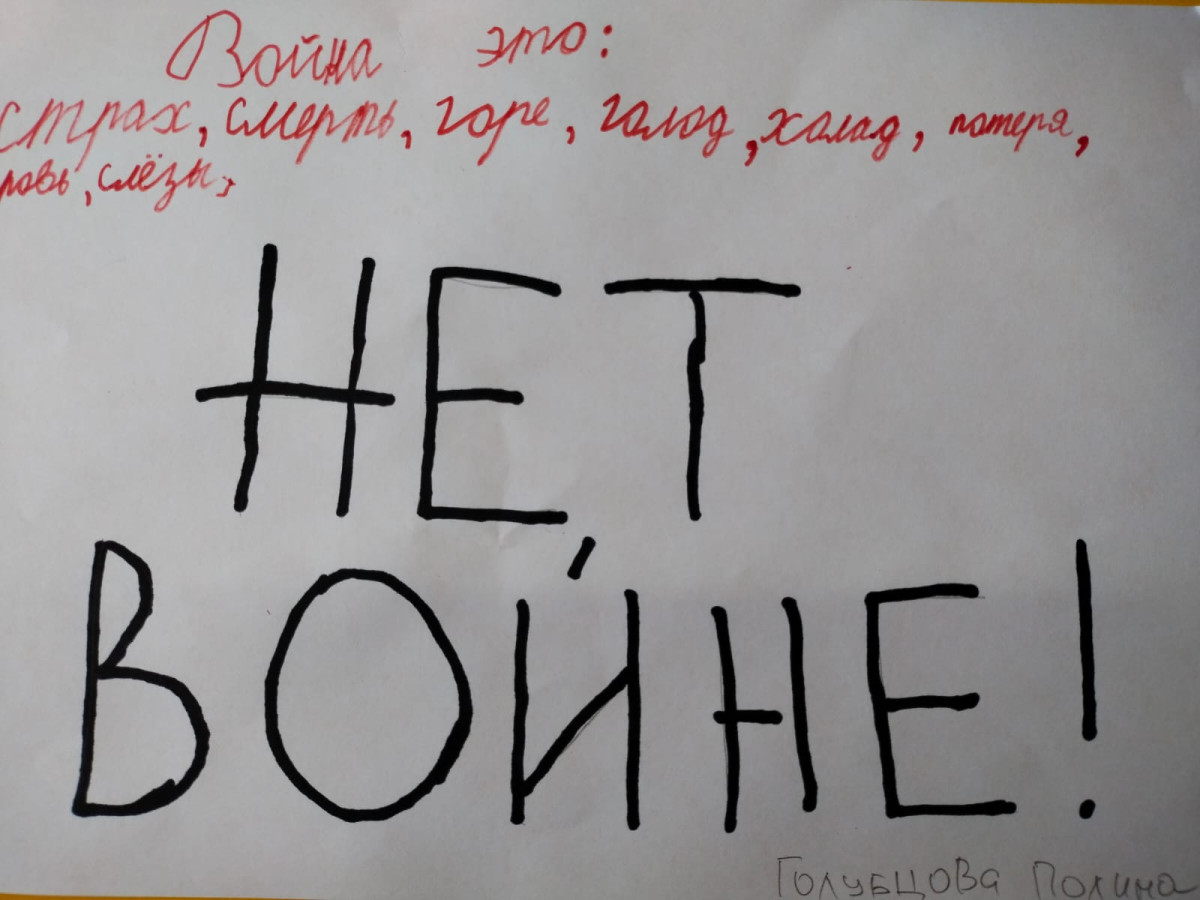 Война это:
страх, смерть, горе, голод, халад, потеря,
ровь, слёзы,
НЕТ
ВОЙНЕ!
Голубцова Полина